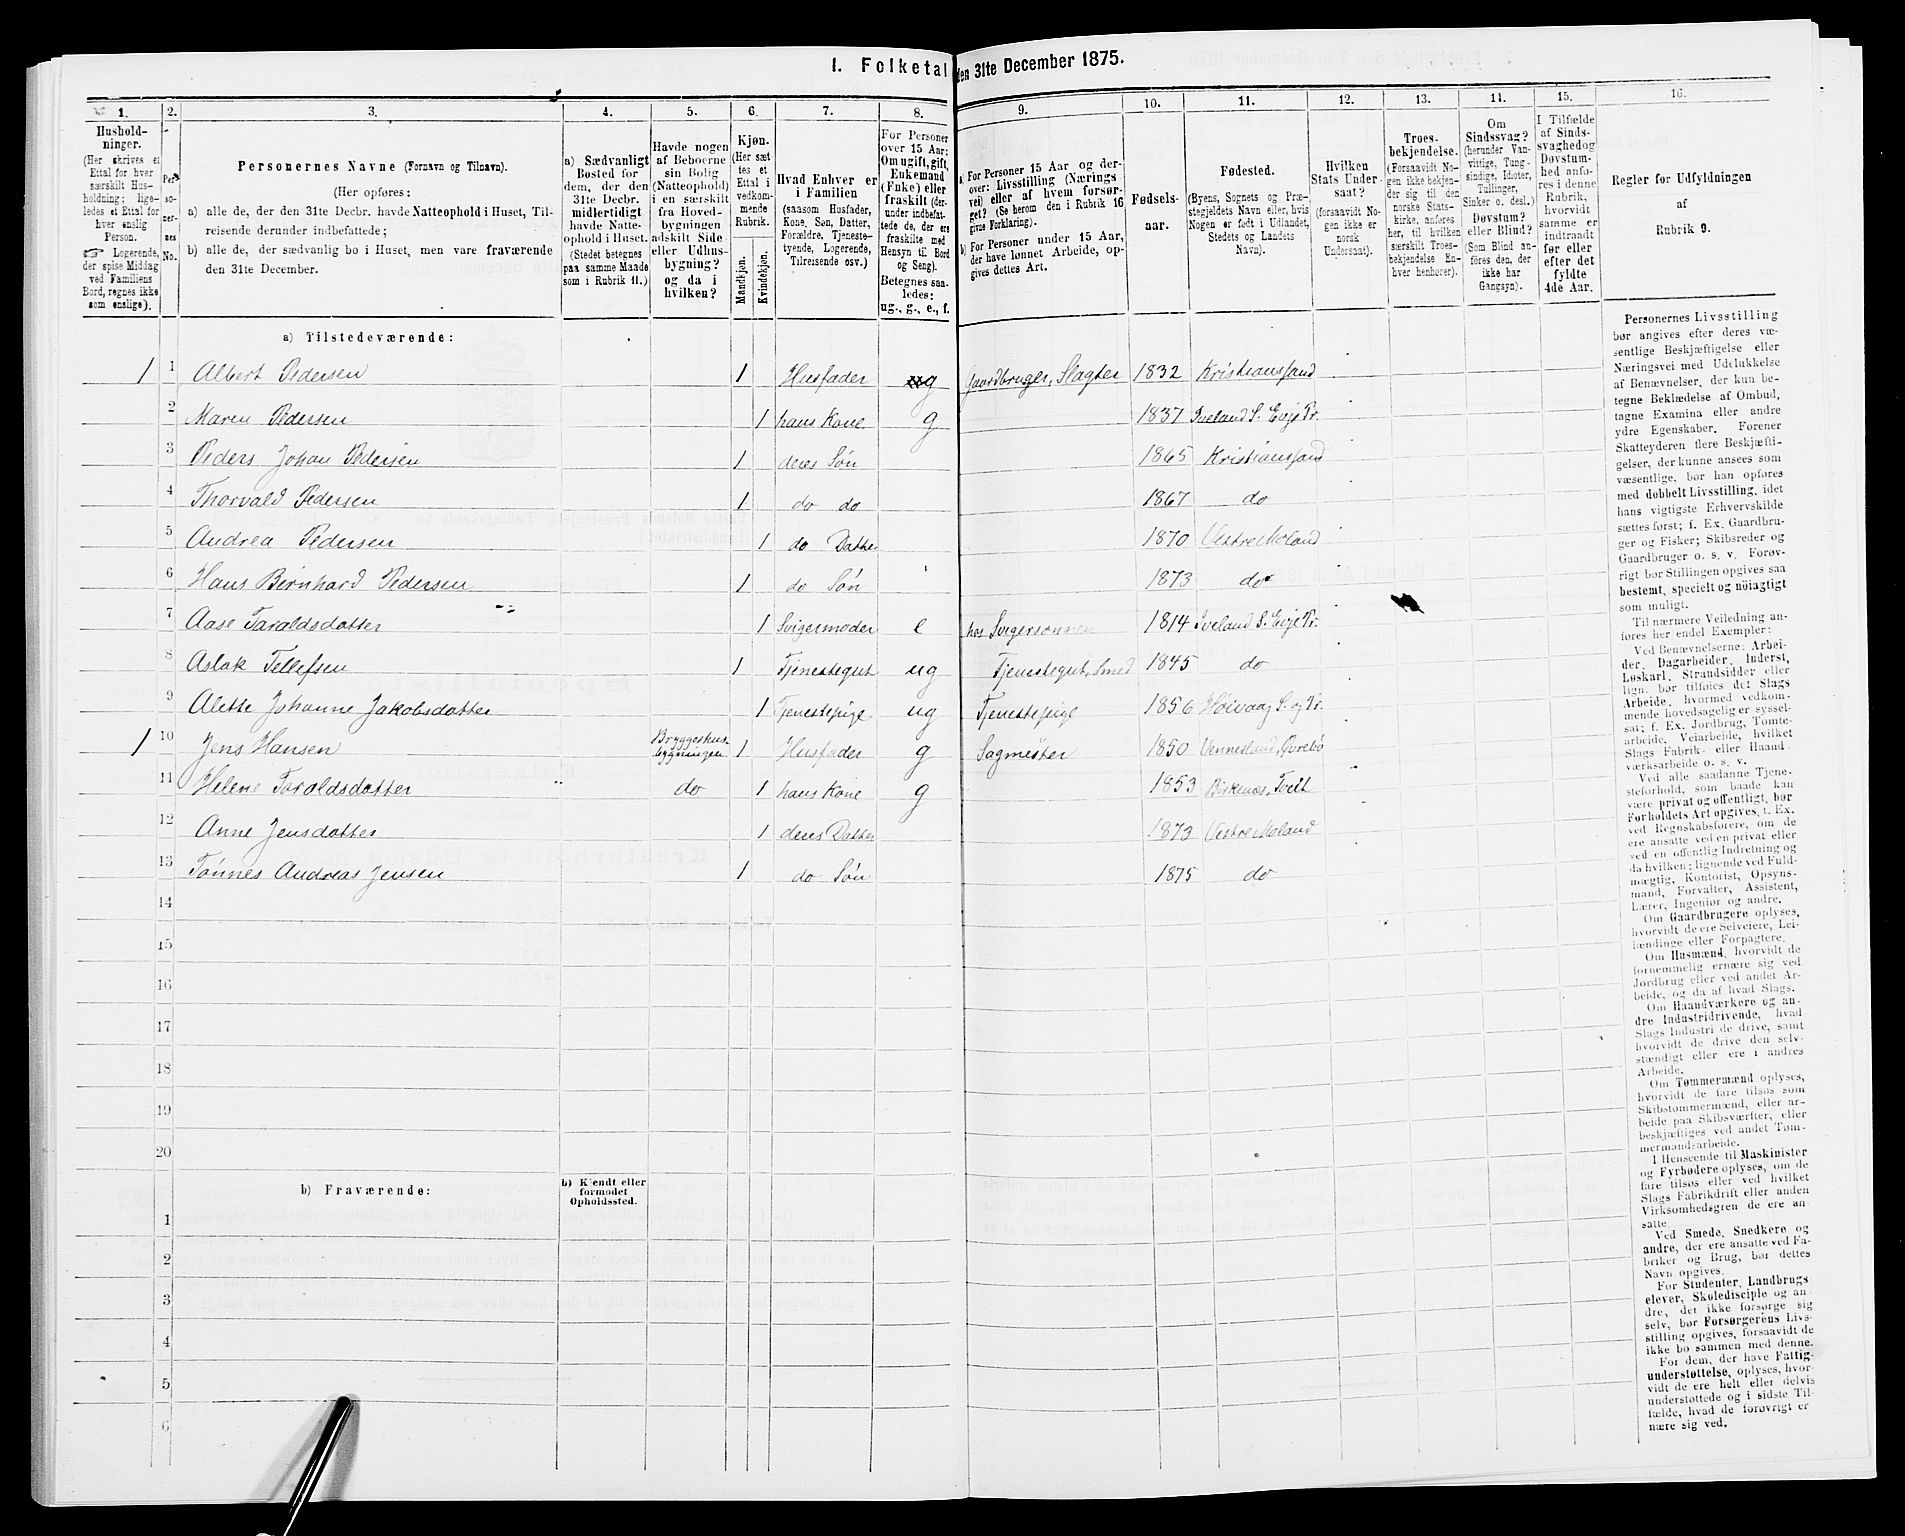 1. Folketal den 31te December 1875.
1. 2. 3. 4. 5. 6. 7. 8. 9. 10. 11. 12. 13. 14. 15. 16.
Hushold-
ninger.
(Her skrives et
Ettal for hver
særskilt Hus-
holdning; lige-
ledes et Ettal for
hver enslig
Person.
☞ Logerende,
der spise Middag
ved Familiens
Bord, regnes ikke
som enslige).
Per-
so-
ner-
nes
No.
Personernes Navne (Fornavn og Tilnavn).
(Her opføres:
a) alle de, der den 31te Decbr. havde Natteophold i Huset, Til-
reisende derunder indbefattede;
b) alle de, der sædvanlig bo i Huset, men vare fraværende
den 31te December.
a) Sædvanligt
Bosted for
dem, der den
31te Decbr.
midlertidigt
havde Natte-
ophold i Huset.
(Stedet betegnes
paa samme Maade
som i Rubrik 11.)
Havde nogen
af Beboerne
sin Bolig
(Natteophold)
i en særskilt
fra Hoved-
bygningen
adskilt Side-
eller Udhus-
bygning?
og da i
hvilken?
Kjøn.
(Her sæt-
tes et
Ettal i
vedkom-
mende
Rubrik.
Mandkjøn.
Kvindekjøn.
Hvad Enhver er
i Familien
(saasom Husfader,
Kone, Søn, Datter,
Forældre, Tjeneste-
tyende, Logerende,
Tilreisende osv.)
For Personer
over 15 Aar:
Om ugift, gift,
Enkemand
(Enke) eller
fraskilt (der-
under indbefat-
tede de, der ere
fraskilte med
Hensyn til Bord
og Seng).
Betegnes saa-
ledes:
ug., g., e., f.
a) For Personer 15 Aar og der-
over: Livsstilling (Nærings-
vei) eller af hvem forsør-
get? (Se herom den i Rubrik 16
givne Forklaring).
b) For Personer under 15 Aar,
der have lønnet Arbeide, op-
gives dettes Art.
Fødsels-
aar.
Fødested.
(Byens, Sognets og Præ-
stegjeldets Navn eller, hvis
Nogen er født i Udlandet,
Stedets og Landets
Navn).
Hvilken
Stats Under-
saat?
(forsaavidt No-
gen ikke er
norsk
Undersaat).
Troes-
bekjendelse.
(Forsaavidt No-
gen ikke bekjen-
der sig til den
norske Stats-
kirke, anføres
her, til hvilken
særskilt Troes-
bekjendelse En-
hver henhører).
Om
Sindssvag?
(herunder Van-
vittige, Tung-
sindige, Idioter,
Tullinger,
Sinker o. desl.)
Døvstum?
eller Blind?
(Som Blind an-
føres den, der
ikke har
Gangsyn).
I Tilfælde
af Sinds-
svaghed og
Døvstum-
hed anfø-
res i denne
Rubrik,
hvorvidt
samme er
indtraadt
før eller
efter det
fyldte
4de Aar.
Regler for Udfyldningen
af
Rubrik 9.
a) Tilstedeværende:
1 1 Albert Pedersen 1 Husfader g Gaardbruger, Slagter 1832 Kristianssand
2 Maren Pedersen 1 hans Kone g 1837 Iveland S. Evje Pr.
3 Peders Johan Pedersen 1 deres Søn 1865 Kristianssand
4 Thorvald Pedersen 1 do do 1867 do
5 Andrea Pedersen 1 do Datter 1870 Vestre Moland
6 Hans Bernhard Pedersen 1 do Søn 1873 do
7 Aase Taraldsdatter 1 Svigermoder e hos Svigersønnen 1814 Iveland S. Evje Pr.
8 Aslak Tellefsen 1 Tjenestegut ug Tjenestegut, Smed 1845 do
9 Alette Johanne Jakobsdatter 1 Tjenestepige ug Tjenestepige 1856 Høivaag S. og Pr.
1 10 Jens Hansen Bryggeshus-
bygningen 1 Husfader g Sagmester 1850 Vennesland, Øvrebø
11 Helene Taraldsdatter do 1 hans Kone g 1853 Birkenæs, Tveit
12 Anne Jensdatter 1 deres Datter 1873 Vestre Moland
13 Tønnes Andreas Jensen 1 do Søn 1875 do
14
15
16
17
18
19
20
b) Fraværende:
b) Kjendt eller
formodet
Opholdssted.
1
2
3
4
5
6
Personernes Livsstilling
bør angives efter deres væ-
sentlige Beskjæftigelse eller
Næringsvei med Udelukkelse
af Benævnelser, der kun be-
tegne Beklædelse af Ombud,
tagne Examina eller andre
ydre Egenskaber. Forener
Skatteyderen flere Beskjæfti-
gelser, der kunne ansees som
væsentlige, bør han opføres
med dobbelt Livsstilling, idet
hans vigtigste Erhvervskilde
sættes først; f. Ex. Gaardbru-
ger og Fisker; Skibsreder og
Gaardbruger o. s. v. Forøv-
rigt bør Stillingen opgives saa
bestemt, specielt og nøiagtigt
som muligt.
Til nærmere Veiledning an-
føres her endel Exempler:
Ved Benævnelserne: Arbei-
der, Dagarbeider, Inderst,
Løskarl, Strandsidder eller
lign. bør tilføies det Slags
Arbeide, hvormed vedkom-
mende hovedsagelig er syssel-
sat; f. Ex. Jordbrug, Tomte-
arbeide, Veiarbeide, hvilket
Slags Fabrik- eller Haand-
værksarbeide o. s. v.
Ved alle saadanne Tjene-
steforhold, som baade kan
være privat og offentligt, bør
Forholdets Art opgives, t. Ex.
ved Regnskabsførere, om de
ere ansatte ved en privat eller
ved en offentlig Indretning og
da hvilken; lignende ved Fuld-
mægtig, Kontorist, Opsyns-
mand, Forvalter, Assistent,
Lærer, Ingeniør og andre.
Om Gaardbrugere oplyses,
hvorvidt de ere Selveiere, Lei-
lændinge eller Forpagtere.
Om Husmænd, hvorvidt de
fornemmelig ernære sig ved
Jordbrug eller ved andet Ar-
beide, og da af hvad Slags.
Om Haandværkere og an-
dre Industridrivende, hvad
Slags Industri de drive, samt
hvorvidt de drive den selv-
stændigt eller ere i andres
Arbeide.
Om Tømmermænd oplyses,
hvorvidt de fare tilsøs som
Skibstømmermænd, eller ar-
beide paa Skibsværfter, eller
beskjæftiges ved andet Tøm-
mermandsarbeide.
I Henseende til Maskinister
og Fyrbødere oplyses, om de
fare tilsøs eller ved hvilket
Slags Fabrikdrift eller anden
Virksomhedsgren de ere an-
satte.
Ved Smede, Snedkere og
andre, der ere ansatte ved Fa-
briker og Brug, bør dettes
Navn opgives.
For Studenter, Landbrugs-
elever, Skoledisciple og an-
dre, der ikke forsørge sig
selv, bør Forsørgerens Livs-
stilling opgives, forsaavidt de
ikke bo sammen med denne.
For dem, der have Fattig-
understøttelse, oplyses, hvor-
vidt de ere helt eller delvis
understøttede og i sidste Til-
fælde, hvad de forøvrigt er-
nære sig ved.